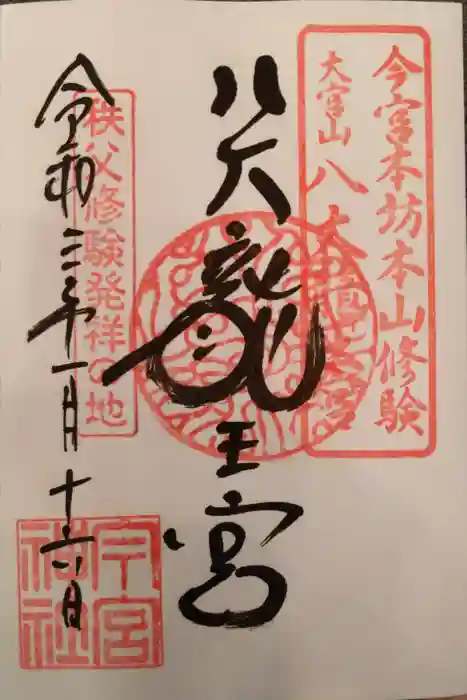 今宮本坊本山修験
大宮山 八大龍王宮
八大龍王宮
秩父修験発祥の地
令和三年一月十六日
今宮神社